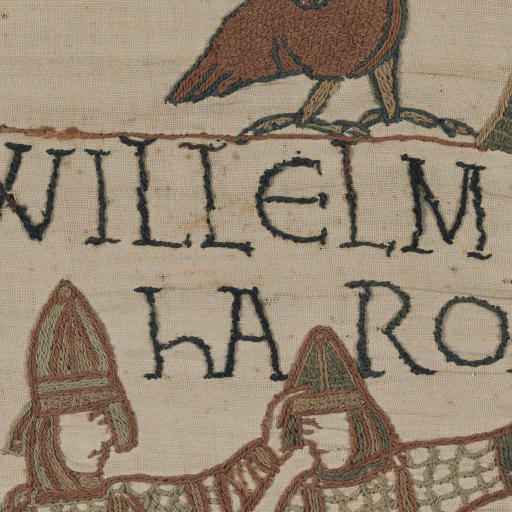 WILLELM
hARO